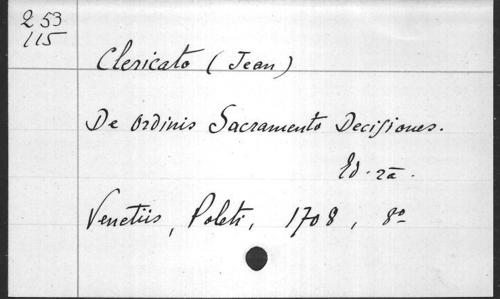 253
115
Clericato (Jean)
De Ordinis Sacramento Decisiones.
Ed. 2a.
Venetiis, Poleti, 1708, 8o